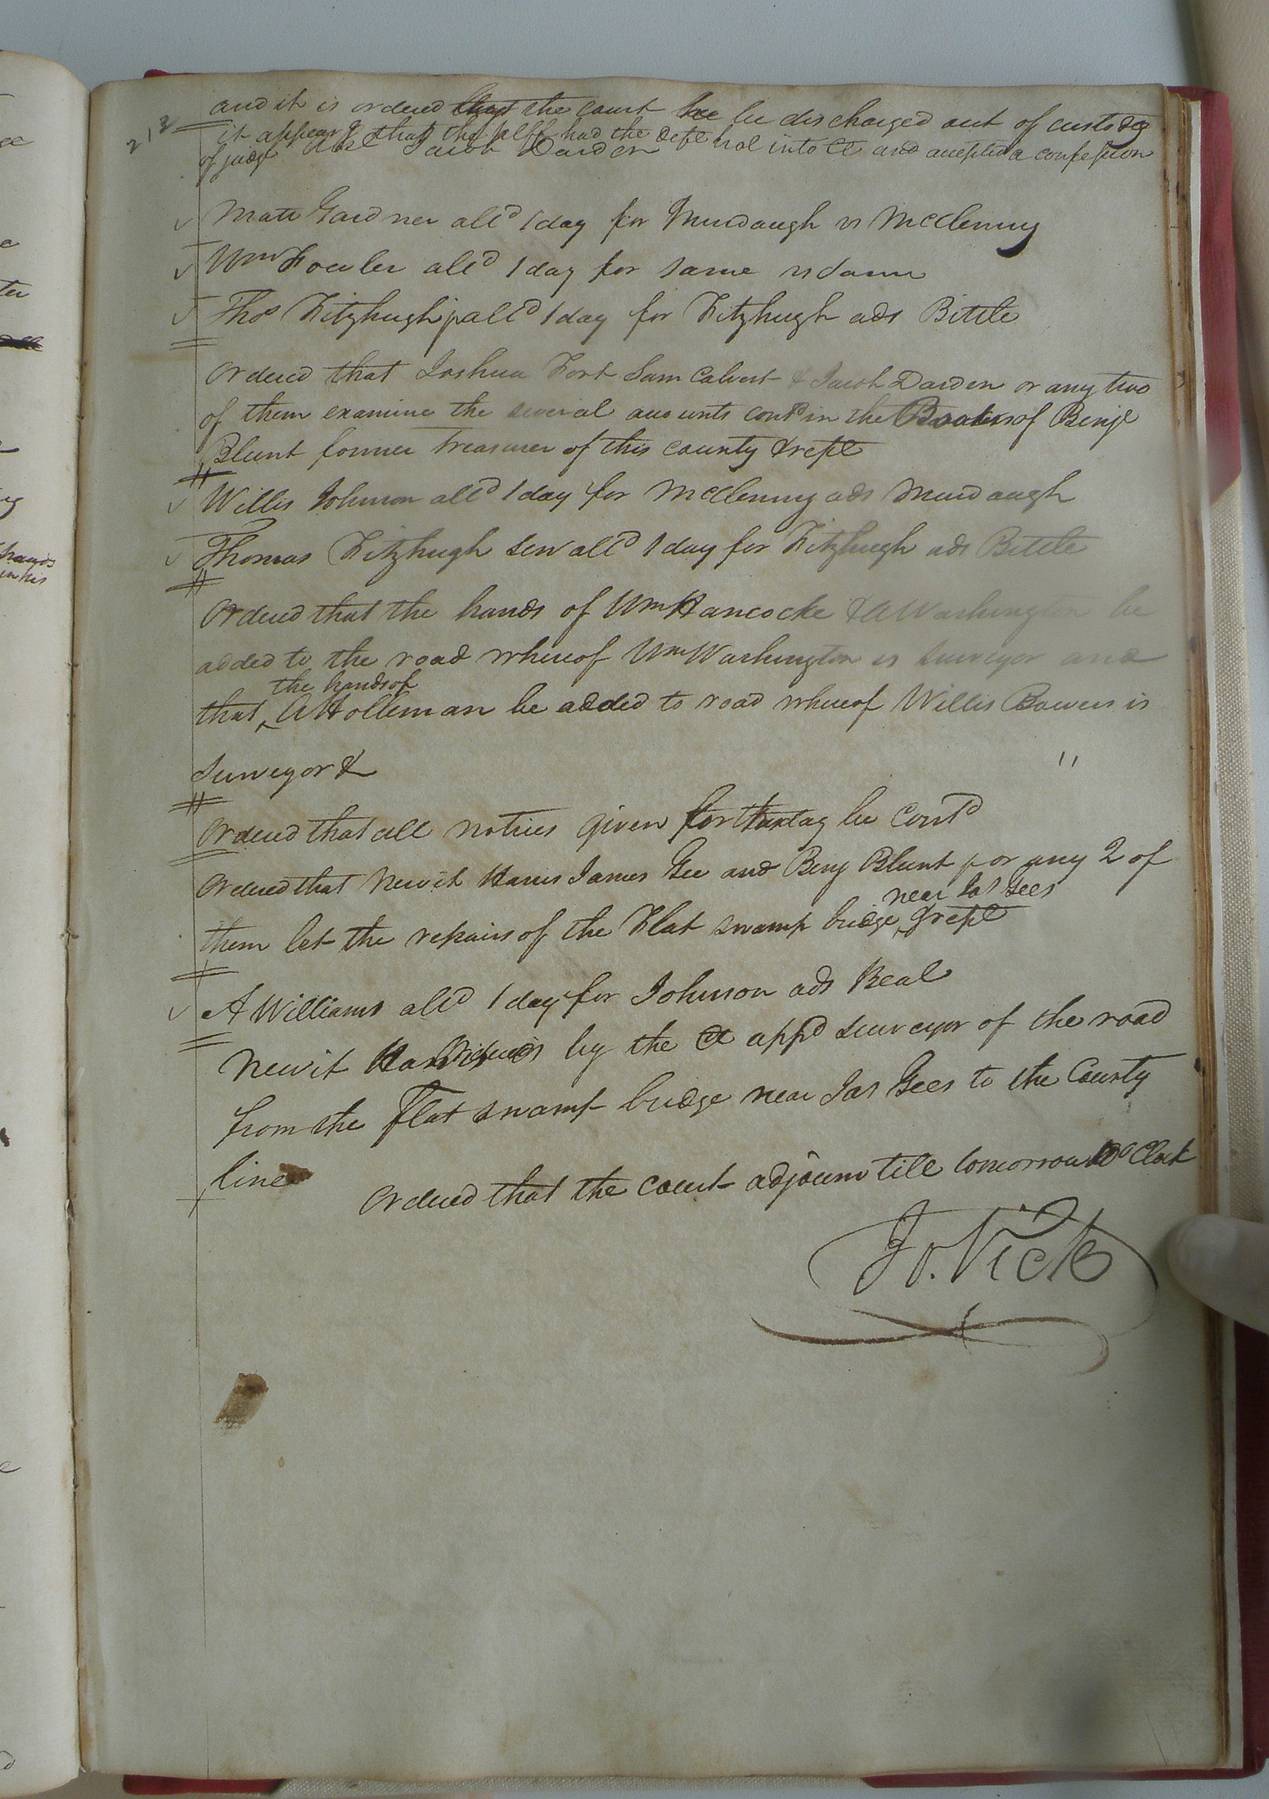 213
and it is ordered that the court he be discharged out of custody
it appearg that the plff had the deft hol into Ct and accepted a confession
of judgt Abs Jacob Darden
Matt Gardner alld 1 day for Murdaugh vs McClenny
Wm Fowler alld 1 day for same vs same
Thos Fitzhugh j alld 1 day for Fitzhugh ads Bittle
Ordered that Joshua Fort Sam Calvert & Jacob Darden or any two
of them examine the several accounts contd in the Books of Benja
Blunt former treasurer of this county & rept
Willis Johnson alld 1 day for McClenny ads Murdaugh
Thomas Fitzhugh Sen alld 1 day for Fitzhugh ads Bittle
Ordered that the hands of Wm Hancocke & A Washington be
added to the road whereof Wm Washington is surveyor and
the hands of
that A Holleman be added to road whereof Willis Bowers is
surveyor &
Ordered that all notices given for this day be Contd
Ordered that Newit Harris James Gee and Benj Blunt or any 2 of
near Jas Gees
them let the repairs of the Flat swamp bridge & rept
A Williams alld 1 day for Johnson ads Beal
Newit Harris is by the Ct appd surveyor of the road
from the Flat swamp bridge near Jas Gees to the County
line
Ordered that the court adjourn till tomorrow 10 oClock
Jo. Vick